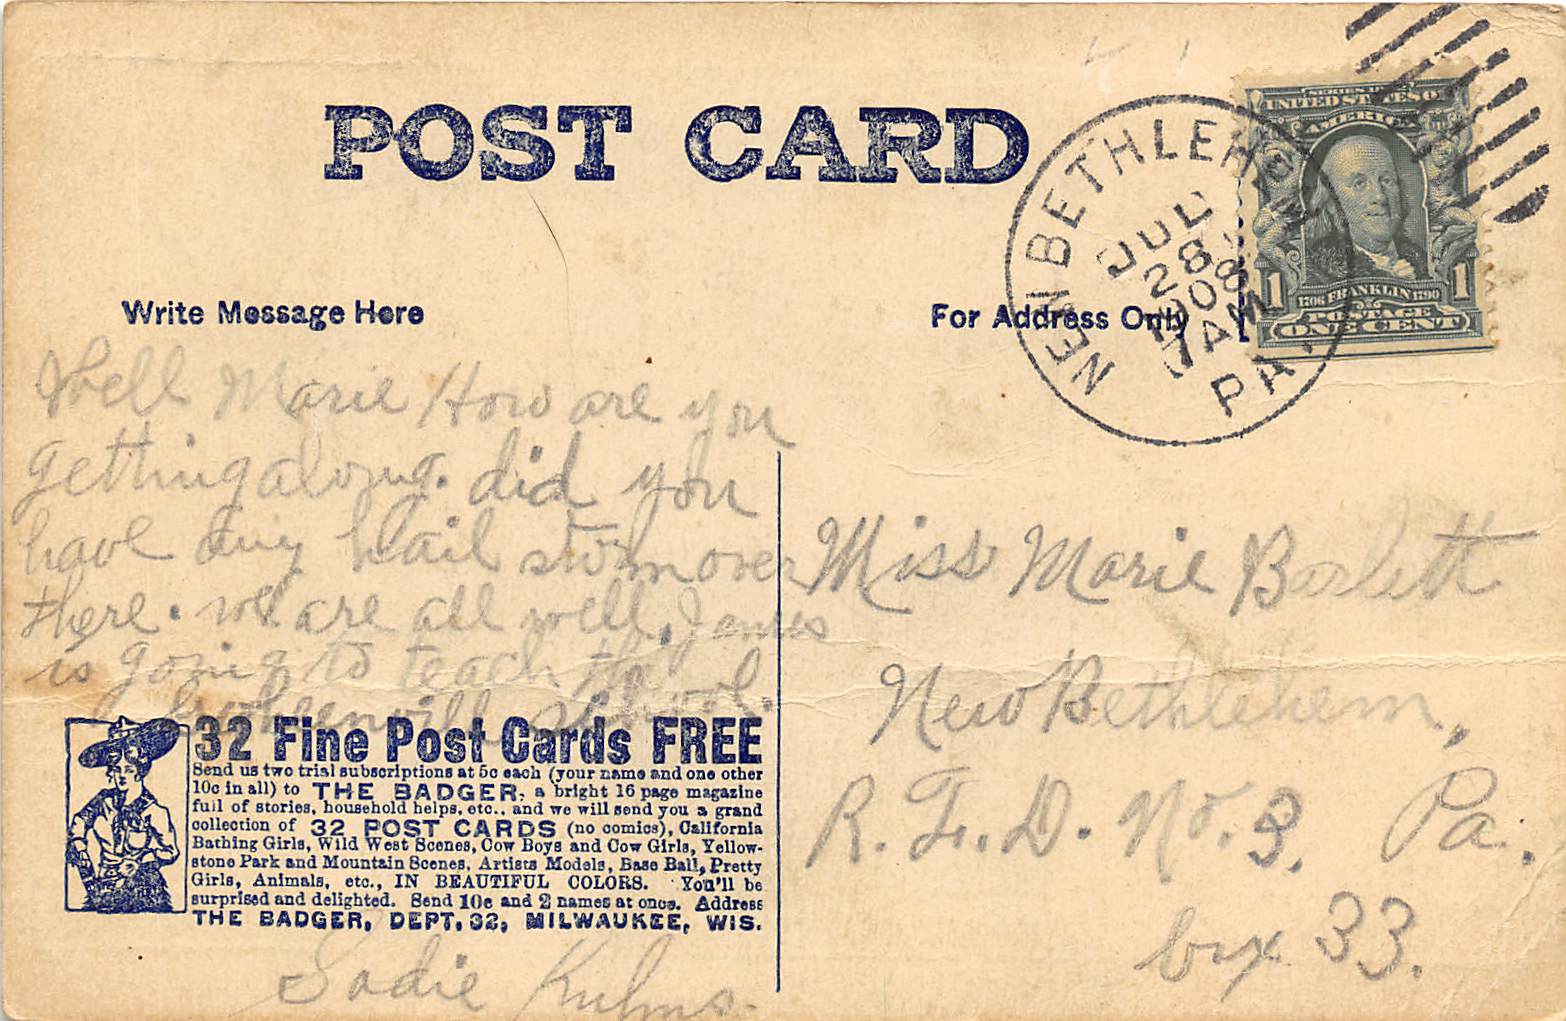 POST CARD
NEW BETHLEHEM
JUL
28
1908
7 AM
PA.
SERIES 1902
UNITED STATES OF
AMERICA
1 1706 FRANKLIN 1790 1
POSTAGE
ONE CENT
Write Message Here
For Address Only
Well Marie How are you
getting along. did you
have any hail storm over
there. we are all well, James
is going to teach the
school.
32 Fine Post Cards FREE
Send us two trial subscriptions at 5c each (your name and one other
10c in all) to THE BADGER, a bright 16 page magazine
full of stories, household helps, etc., and we will send you a grand
collection of 32 POST CARDS (no comics), California
Bathing Girls, Wild West Scenes, Cow Boys and Cow Girls, Yellow-
stone Park and Mountain Scenes, Artists Models, Base Ball, Pretty
Girls, Animals, etc., IN BEAUTIFUL COLORS. You'll be
surprised and delighted. Send 10c and 2 names at once. Address
THE BADGER, DEPT. 32, MILWAUKEE, WIS.
Sadie Kuhns.
Miss Marie Barlett
New Bethlehem,
R. F. D. No. 3. Pa.
box 33.